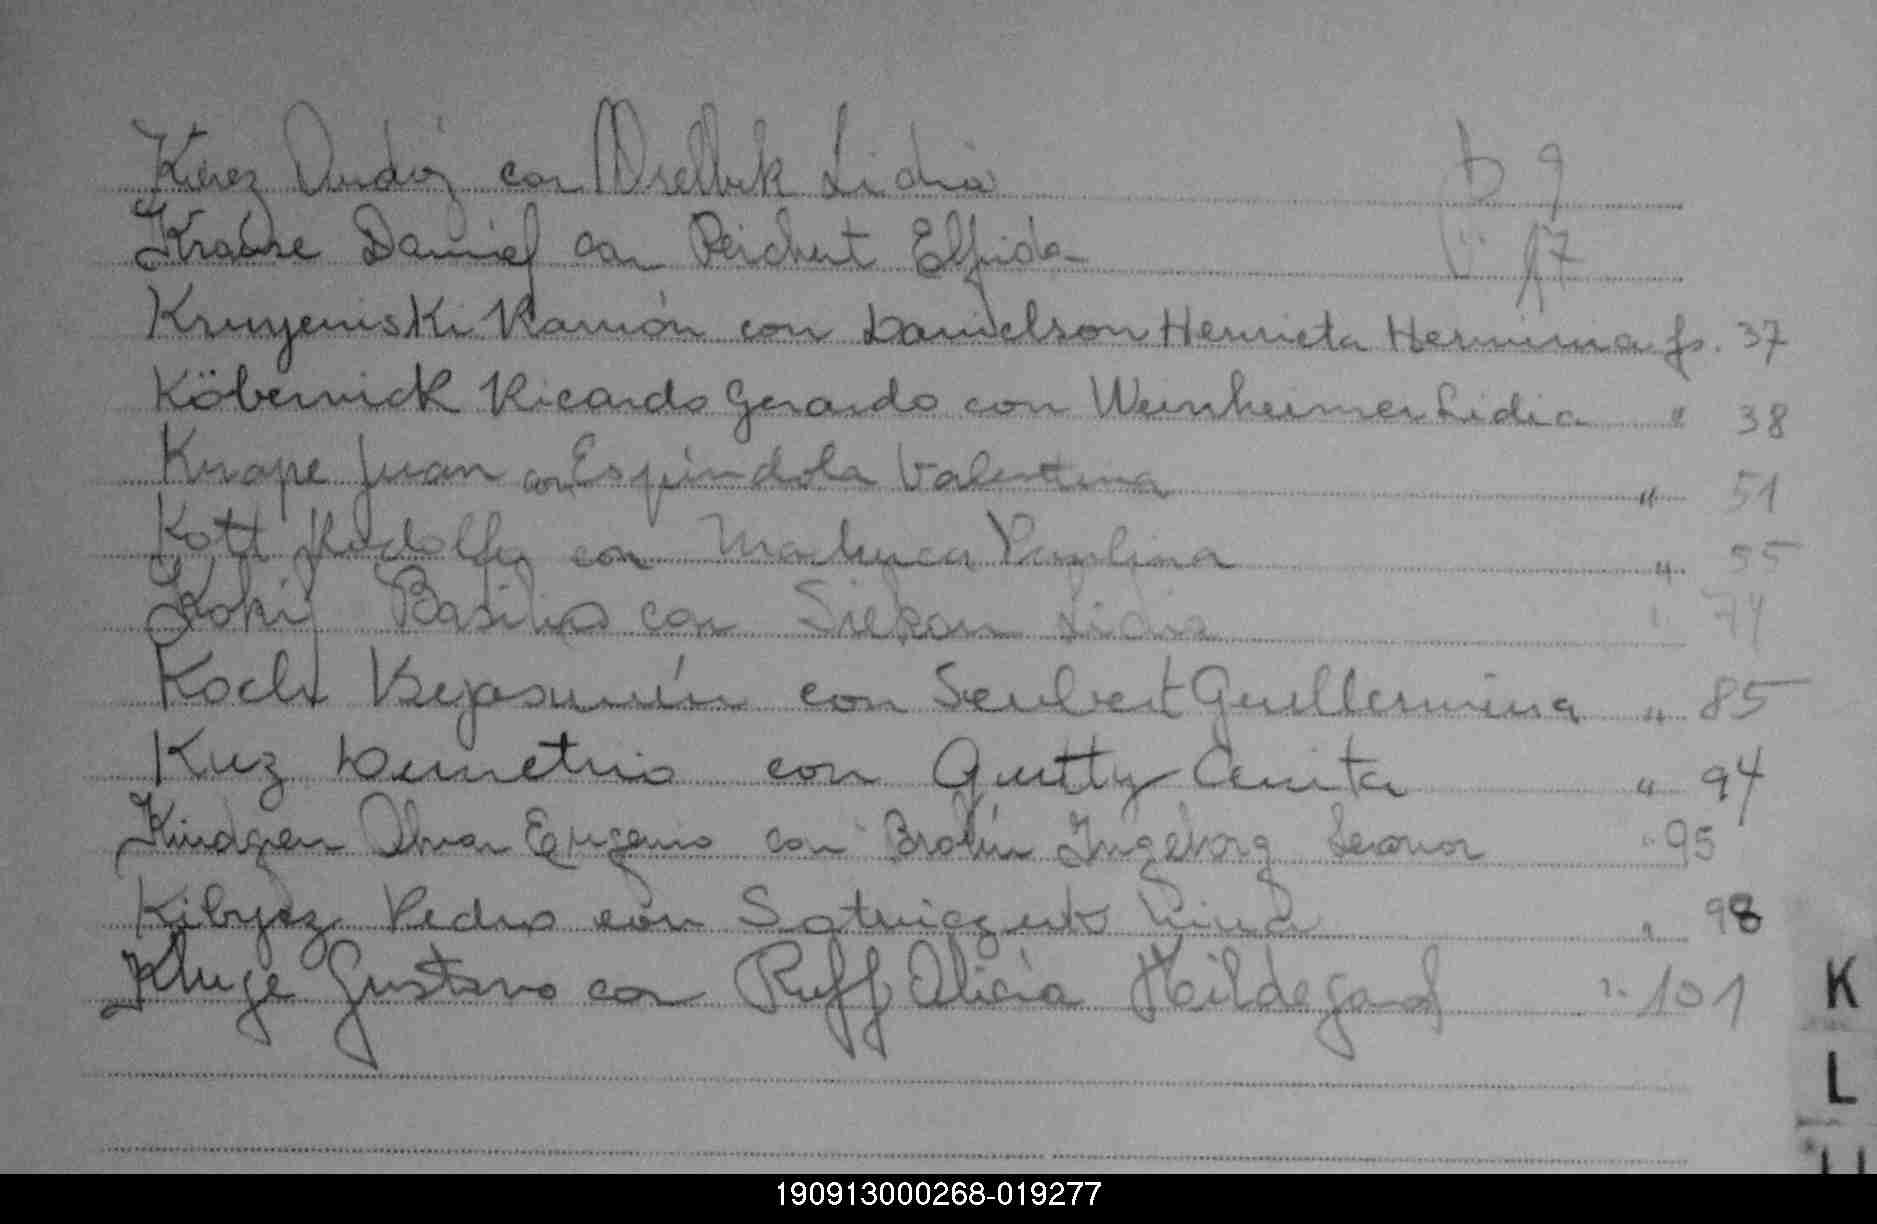 Kerez Andrés con Drelbek Lidia 9
Krause Daniel con Reichert Elfrida " 17
Kruyeniski Ramón con Danielson Henrieta Herminia fs. 37
Köbernick Ricardo Gerardo con Weinheimer Lidia " 38
Knape Juan con Espíndola Valentina " 51
Kott Rodolfo con Machuca Paulina " 55
Basilio con Lidia " 74
Koch Bejasmín con Seubert Guillermina " 85
Kuz Demetrio con Guetty Anita " 94
Kindgen Eugenio con Ingeborg Leonor " 95
Kibysz Pedro con Lina " 98
Kluge Gustavo con Ruff Alicia Hildegard " 101
K
L
190913000268-019277